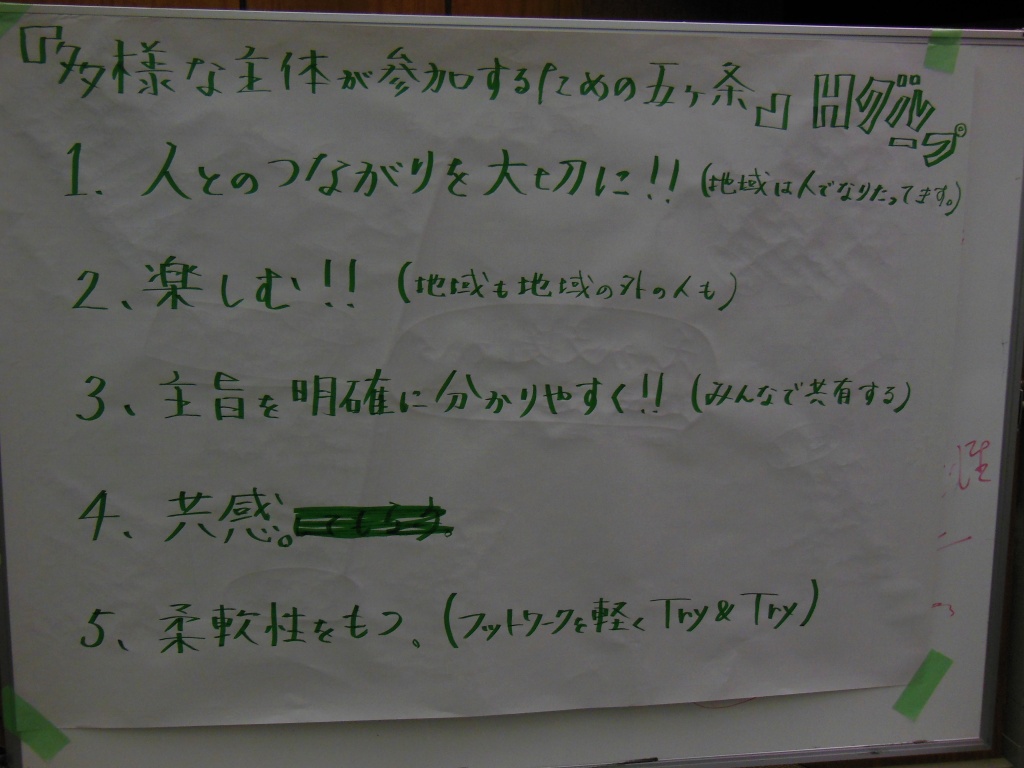 『多様な主体が参加するための五ヶ条』 Hグループ
1. 人とのつながりを大切に!! (地域は人でなりたってます。)
2、楽しむ!! (地域も地域の外の人も)
3、主旨を明確に分かりやすく!! (みんなで共有する)
4、共感。
5、柔軟性をもつ。(フットワークを軽く Try & Try)
性